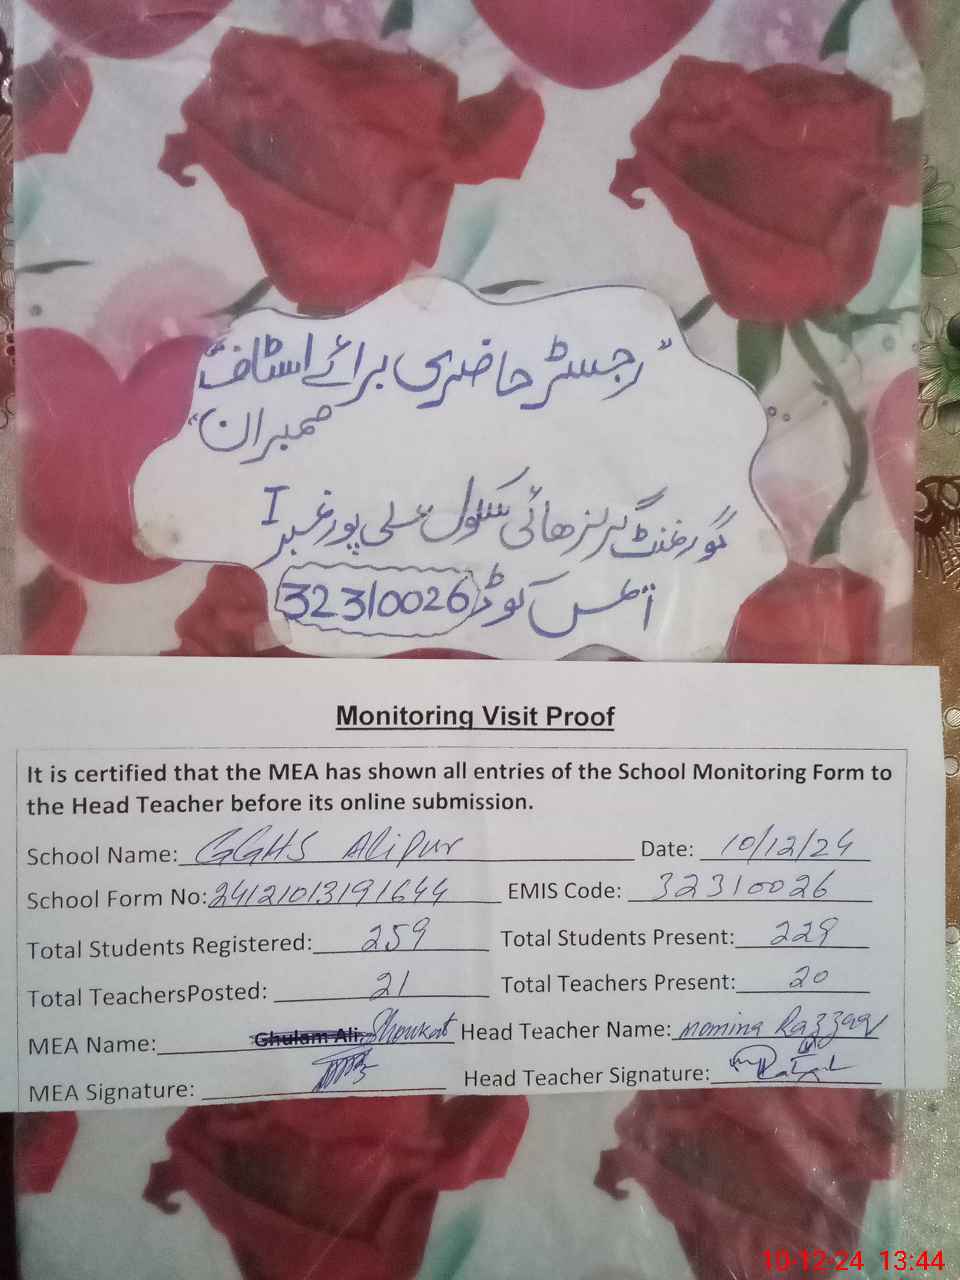 "رجسٹر حاضری برائے اسٹاف
ممبران"
گورنمنٹ گرلز ھائی سکول علی پور نمبر I
ائمس کوڈ 32310026
Monitoring Visit Proof
It is certified that the MEA has shown all entries of the School Monitoring Form to
the Head Teacher before its online submission.
School Name: GGHS Alipur Date: 10/12/24
School Form No: 2412101319 1644 EMIS Code: 32310026
Total Students Registered: 259 Total Students Present: 229
Total TeachersPosted: 21 Total Teachers Present: 20
MEA Name: Ghulam Ali Showkat Head Teacher Name: Momina Razzaq
MEA Signature: Head Teacher Signature:
10-12-24 13:44